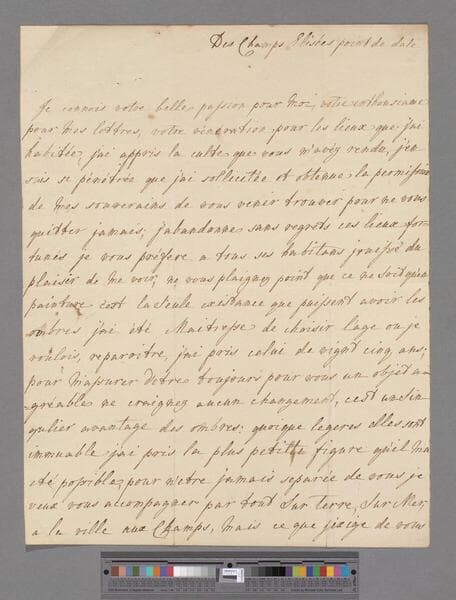 Des Champs Elisées point de date
Je connois votre belle passion pour moi, votre entousiasme
pour mes lettres, votre vénération pour les lieux que j'ai
habités, j'ai appris la culte que vous m'avéz rendu, j'en
suis si pénétrée que j'ai sollicitée et obtenue la permission
de mes souverains de vous venir trouver pour ne vous
quitter jamais; j'abandonne sans regrets ces lieux for-
tunés je vous préfere a tous ses habitans jouissés du
plaisir de me voir, ne vous plaignez point que ce ne soit qu'en
painture c'est la seule existance que puissent avoir les
ombres j'ai été Maitresse de choisir l'age ou je
voulois, reparoitre, j'ai pris celui de vignt cinq ans;
pour m'assurer d'etre toujours pour vous un objet a-
gréable ne craignez aucun changement, c'est un sin-
gulier avantage des ombres; quoique legeres elles sont
immuable j'ai pris la plus petitte figure qu'il m'a
eté possible, pour n'etre jamais separée de vous je
veux vous accompagner par tout sur terre, sur Mer,
a la ville aux Champs, mais ce que j'exige de vous